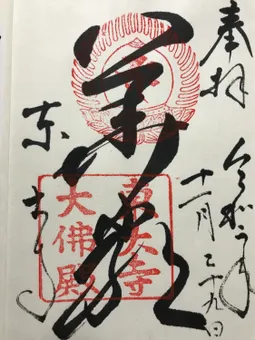 奉拝
令和元年
十一月二十九日
華厳
東大寺
東大寺
大佛殿